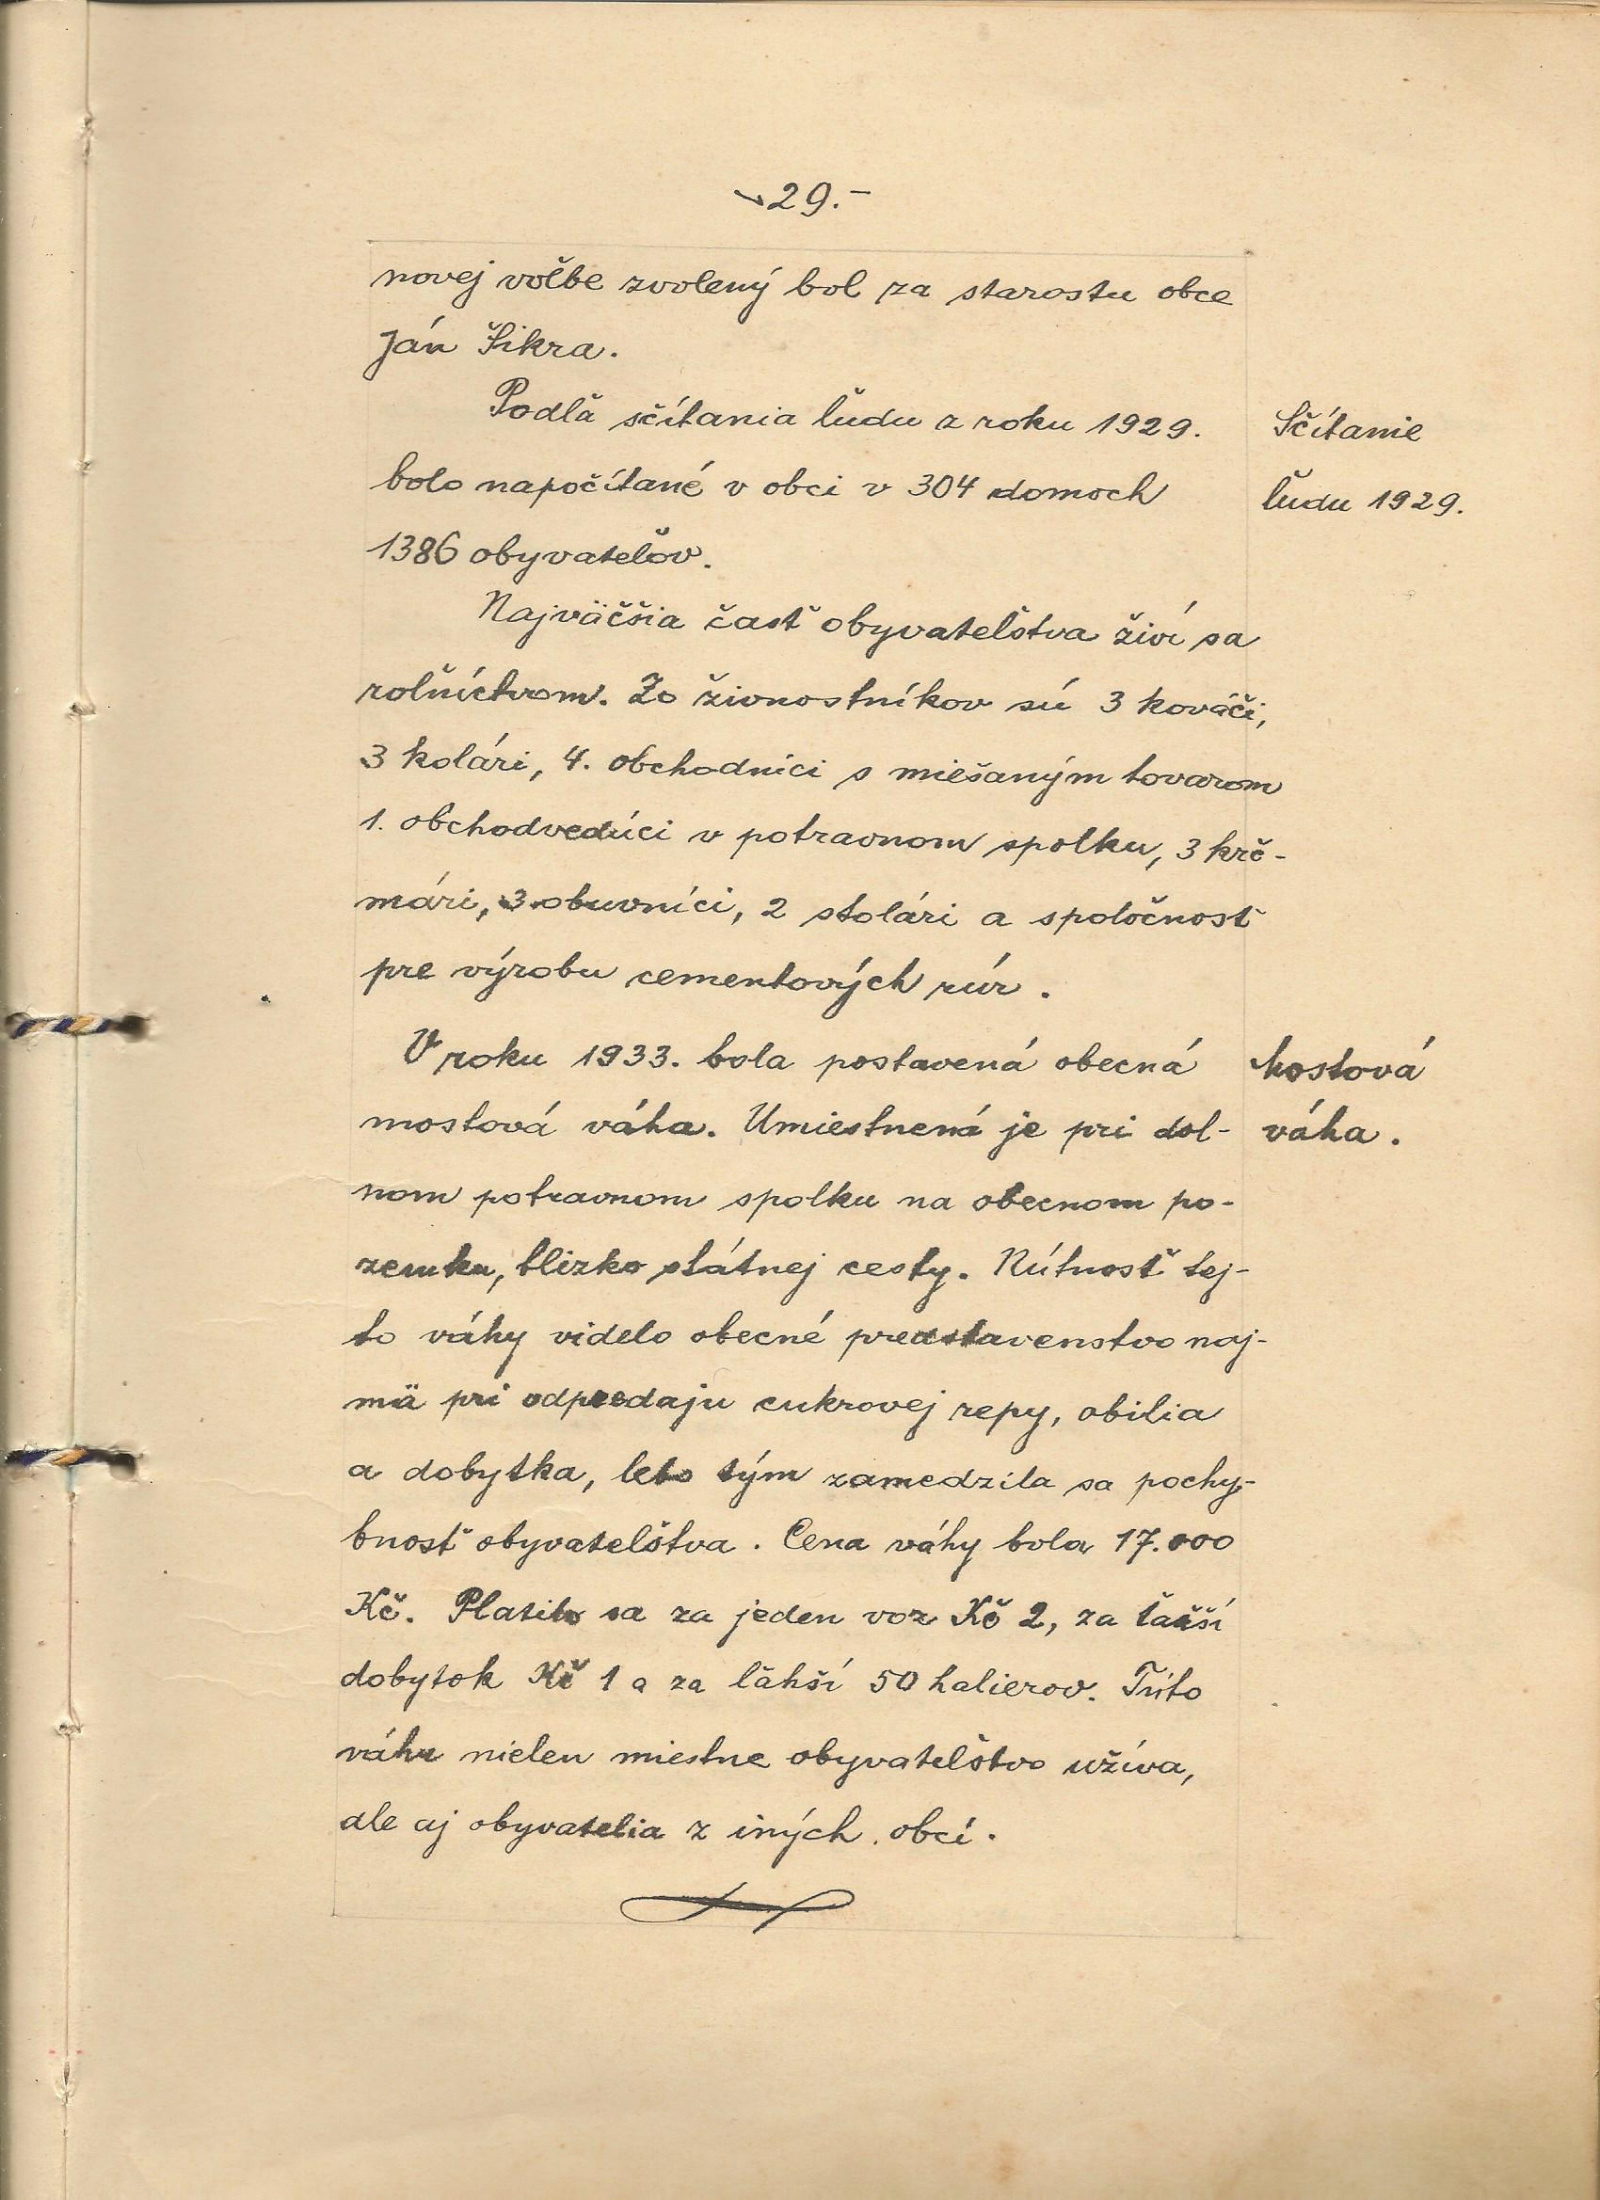 -29.-
novej voľbe zvolený bol za starostu obce
Ján Šikra.
Podľa sčítania ľudu z roku 1929.
Sčítanie
bolo napočítané v obci v 304 domoch
ľudu 1929.
1386 obyvateľov.
Najväčšia časť obyvateľstva živí sa
roľníctvom. Zo živnostníkov sú 3 kováči,
3 kolári, 4. obchodníci s miešaným tovarom
1. obchodvedúci v potravnom spolku, 3 krč-
mári, 3 obuvníci, 2 stolári a spoločnosť
pre výrobu cementových rúr.
V roku 1933. bola postavená obecná
Mostová
mostová váha. Umiestnená je pri dol-
váha.
nom potravnom spolku na obecnom po-
zemku, blízko státnej cesty. Nútnosť tej-
to váhy videlo obecné predstavenstvo naj-
mä pri odpredaju cukrovej repy, obilia
a dobytka, lebo tým zamedzila sa pochy-
bnosť obyvateľstva. Cena váhy bola 17.000
Kč. Platilo sa za jeden voz Kč 2, za ťažší
dobytok Kč 1 a za ľahší 50 halierov. Túto
váhu nielen miestne obyvateľstvo užíva,
ale aj obyvatelia z iných obcí.